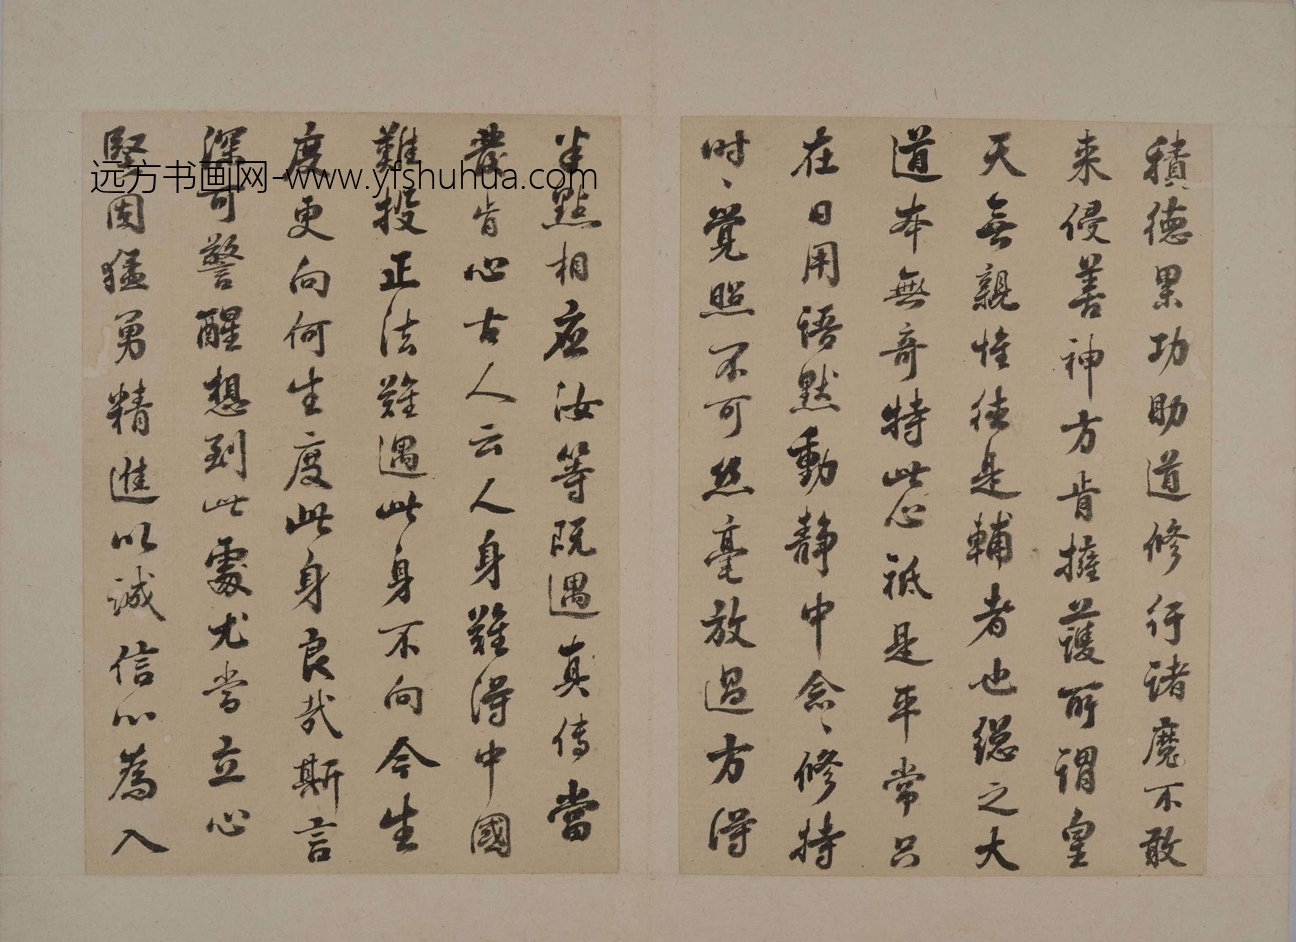 積德累功助道修行諸魔不敢
来侵善神方肯擁護所謂皇
天無親惟德是輔者也總之大
道本無奇特此心祗是平常只
在日用语默動静中念〻修持
时〻覺照不可丝毫放過方得
半點相應汝等既遇真傳當
發肯心古人云人身難得中國
難投正法難遇此身不向今生
度更向何生度此身良哉斯言
深可警醒想到此處尤當立心
堅固猛勇精進以誠信心為入
远方书画网-www.yfshuhua.com